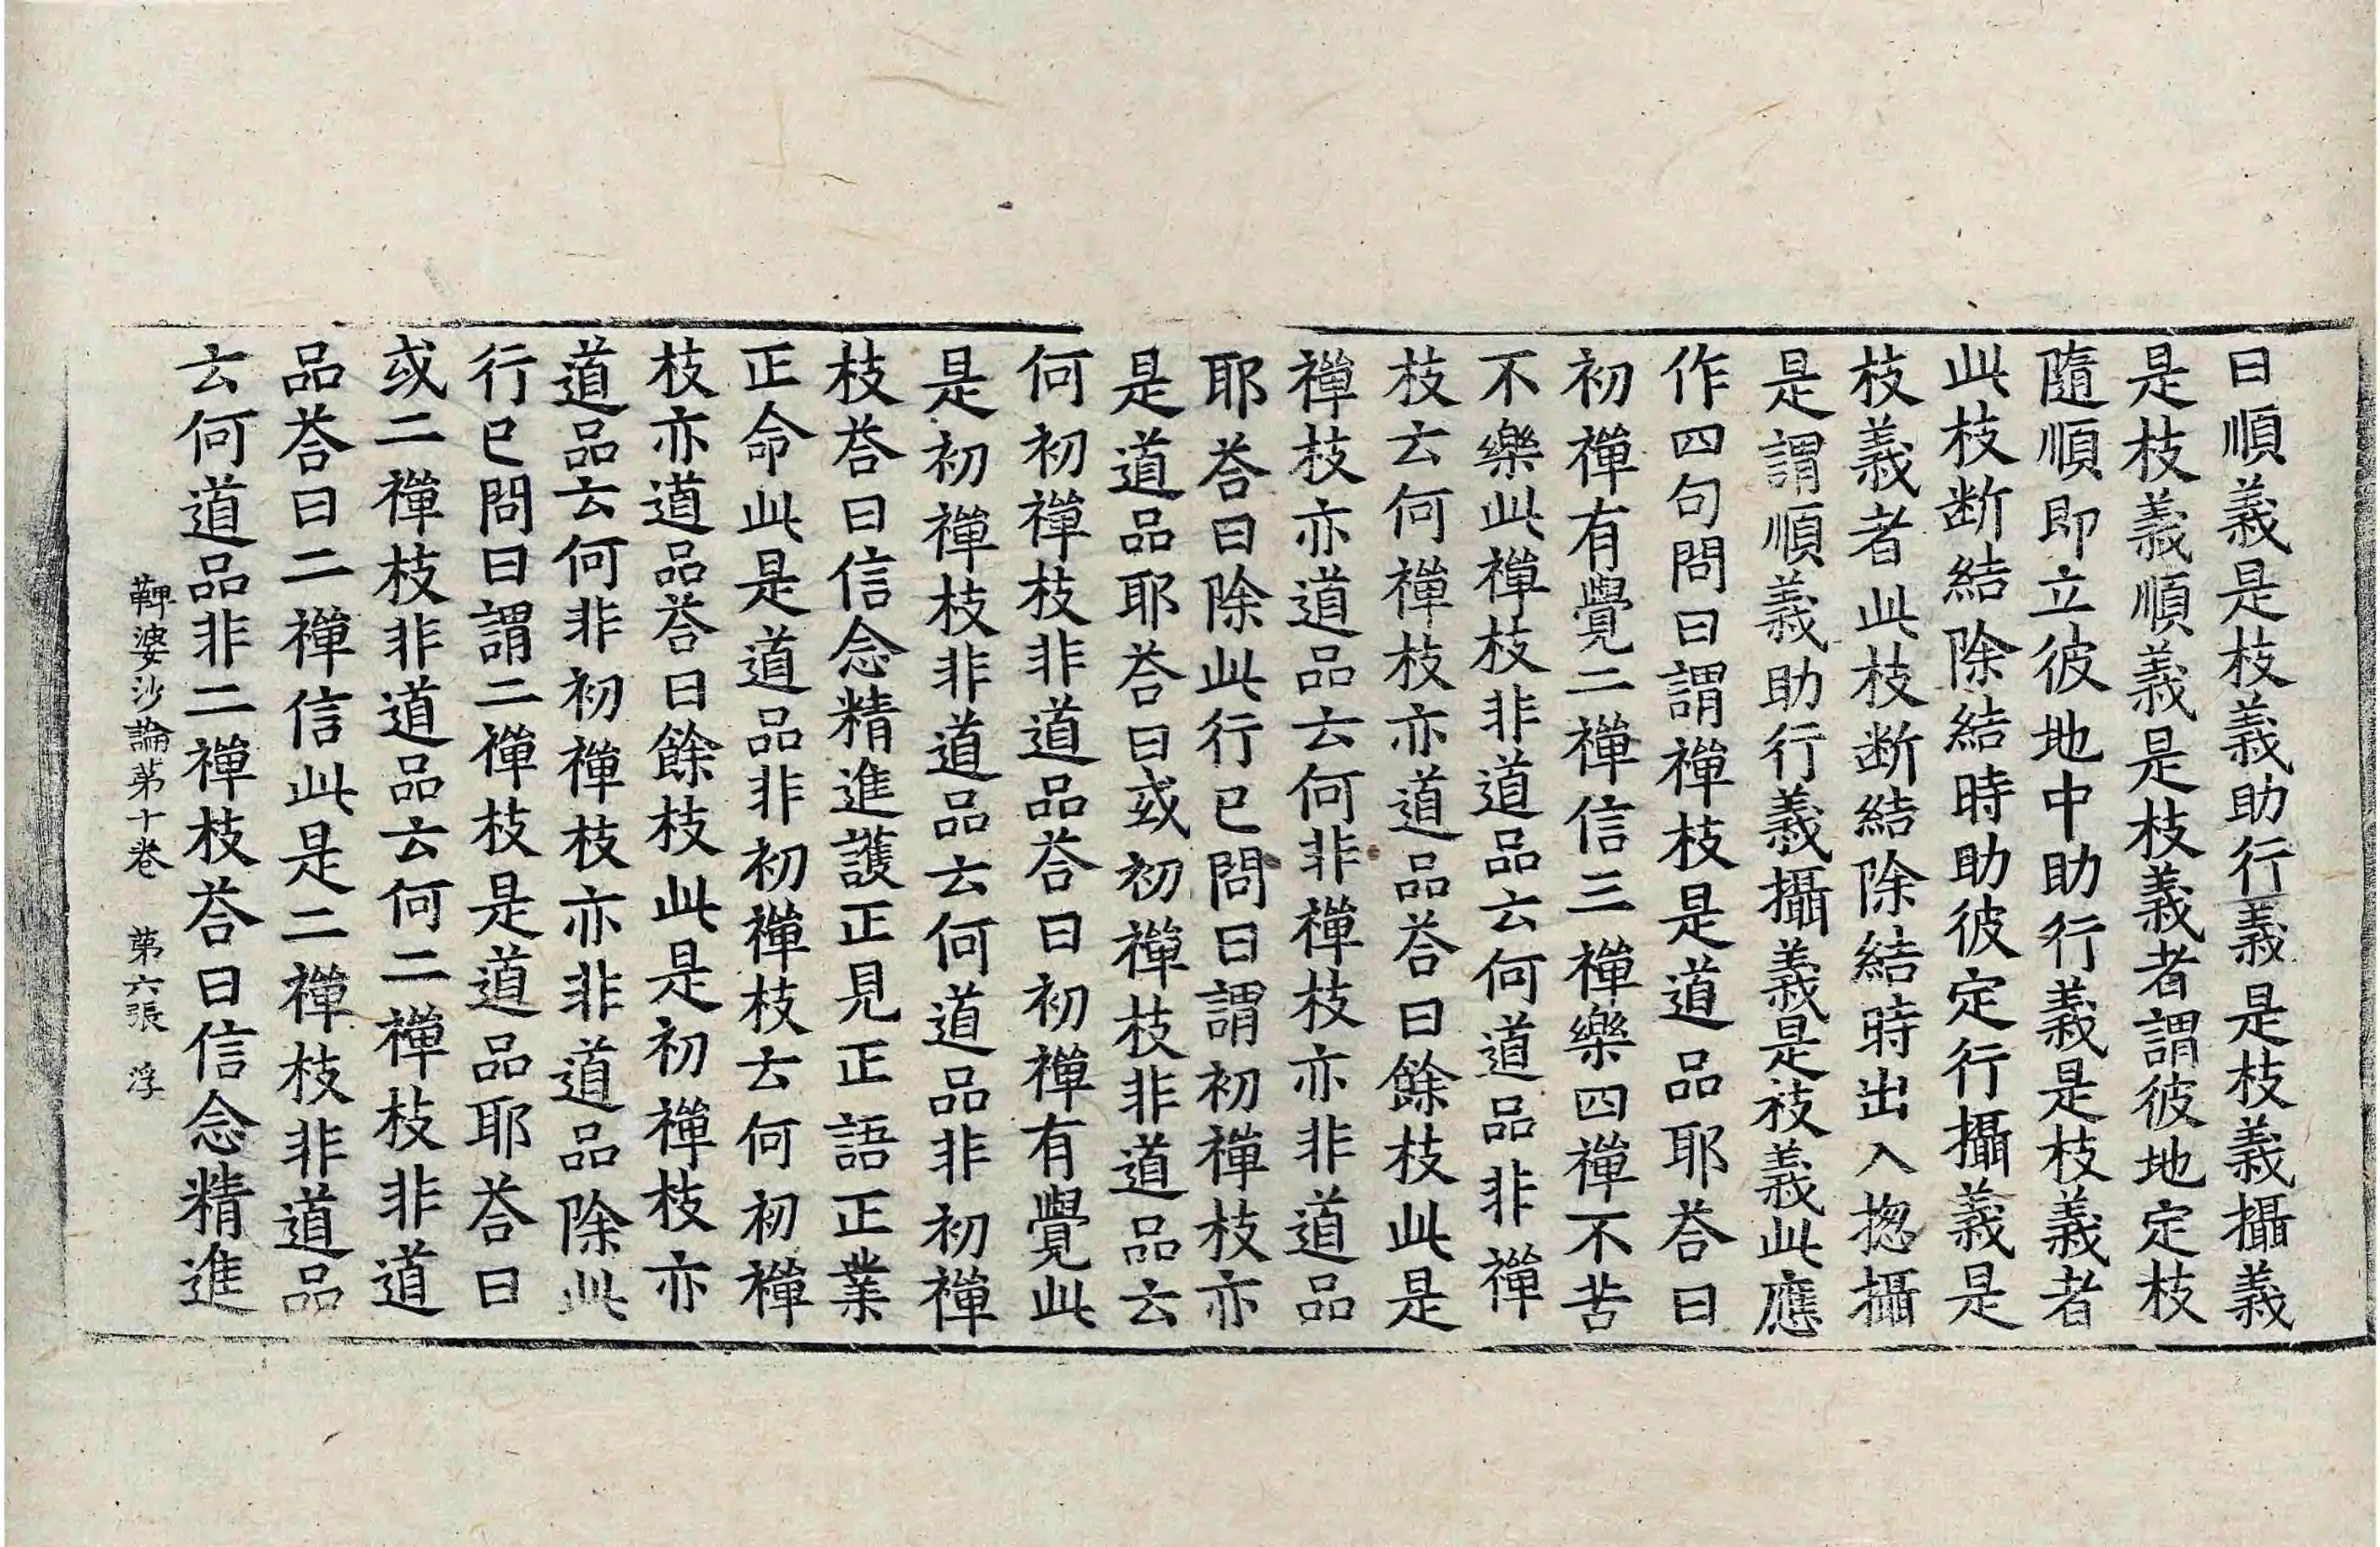 曰順義是枝義助行義是枝義攝義
是枝義順義是枝義者謂彼地定枝
隨順即立彼地中助行義是枝義者
此枝断結除結時助彼定行攝義是
枝義者此枝断結除結時出入揔攝
是謂順義助行義攝義是枝義此應
作四句問曰謂禪枝是道品耶荅曰
初禪有覺二禪信三禪樂四禪不苦
不樂此禪枝非道品云何道品非禪
枝云何禪枝亦道品荅曰餘枝此是
禪枝亦道品云何非禪枝亦非道品
耶荅曰除此行已問曰謂初禪枝亦
是道品耶荅曰或初禪枝非道品云
何初禪枝非道品荅曰初禪有覺此
是初禪枝非道品云何道品非初禪
枝荅曰信念精進護正見正語正業
正命此是道品非初禪枝云何初禪
枝亦道品荅曰餘枝此是初禪枝亦
道品云何非初禪枝亦非道品除此
行已問曰謂二禪枝是道品耶荅曰
或二禪枝非道品云何二禪枝非道
品荅曰二禪信此是二禪枝非道品
云何道品非二禪枝荅曰信念精進
鞞婆沙論苐十卷 苐六張 浮